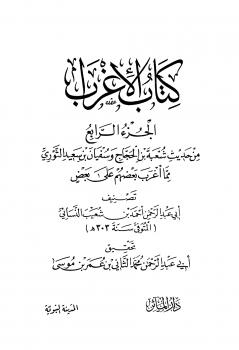 كتاب الإغراب
الجزء الرابع
من حديث شعبة بن الحجاج وسفيان بن سعيد الثوري
مما أغرب بعضهم على بعض
تصنيف
أبي عبد الرحمن أحمد بن شعيب النسائي
(المتوفى سنة ٣٠٣ هـ)
تحقيق
أبي عبد الرحمن محمد الثاني بن عمر بن موسى
دار المآثر
المدينة النبوية